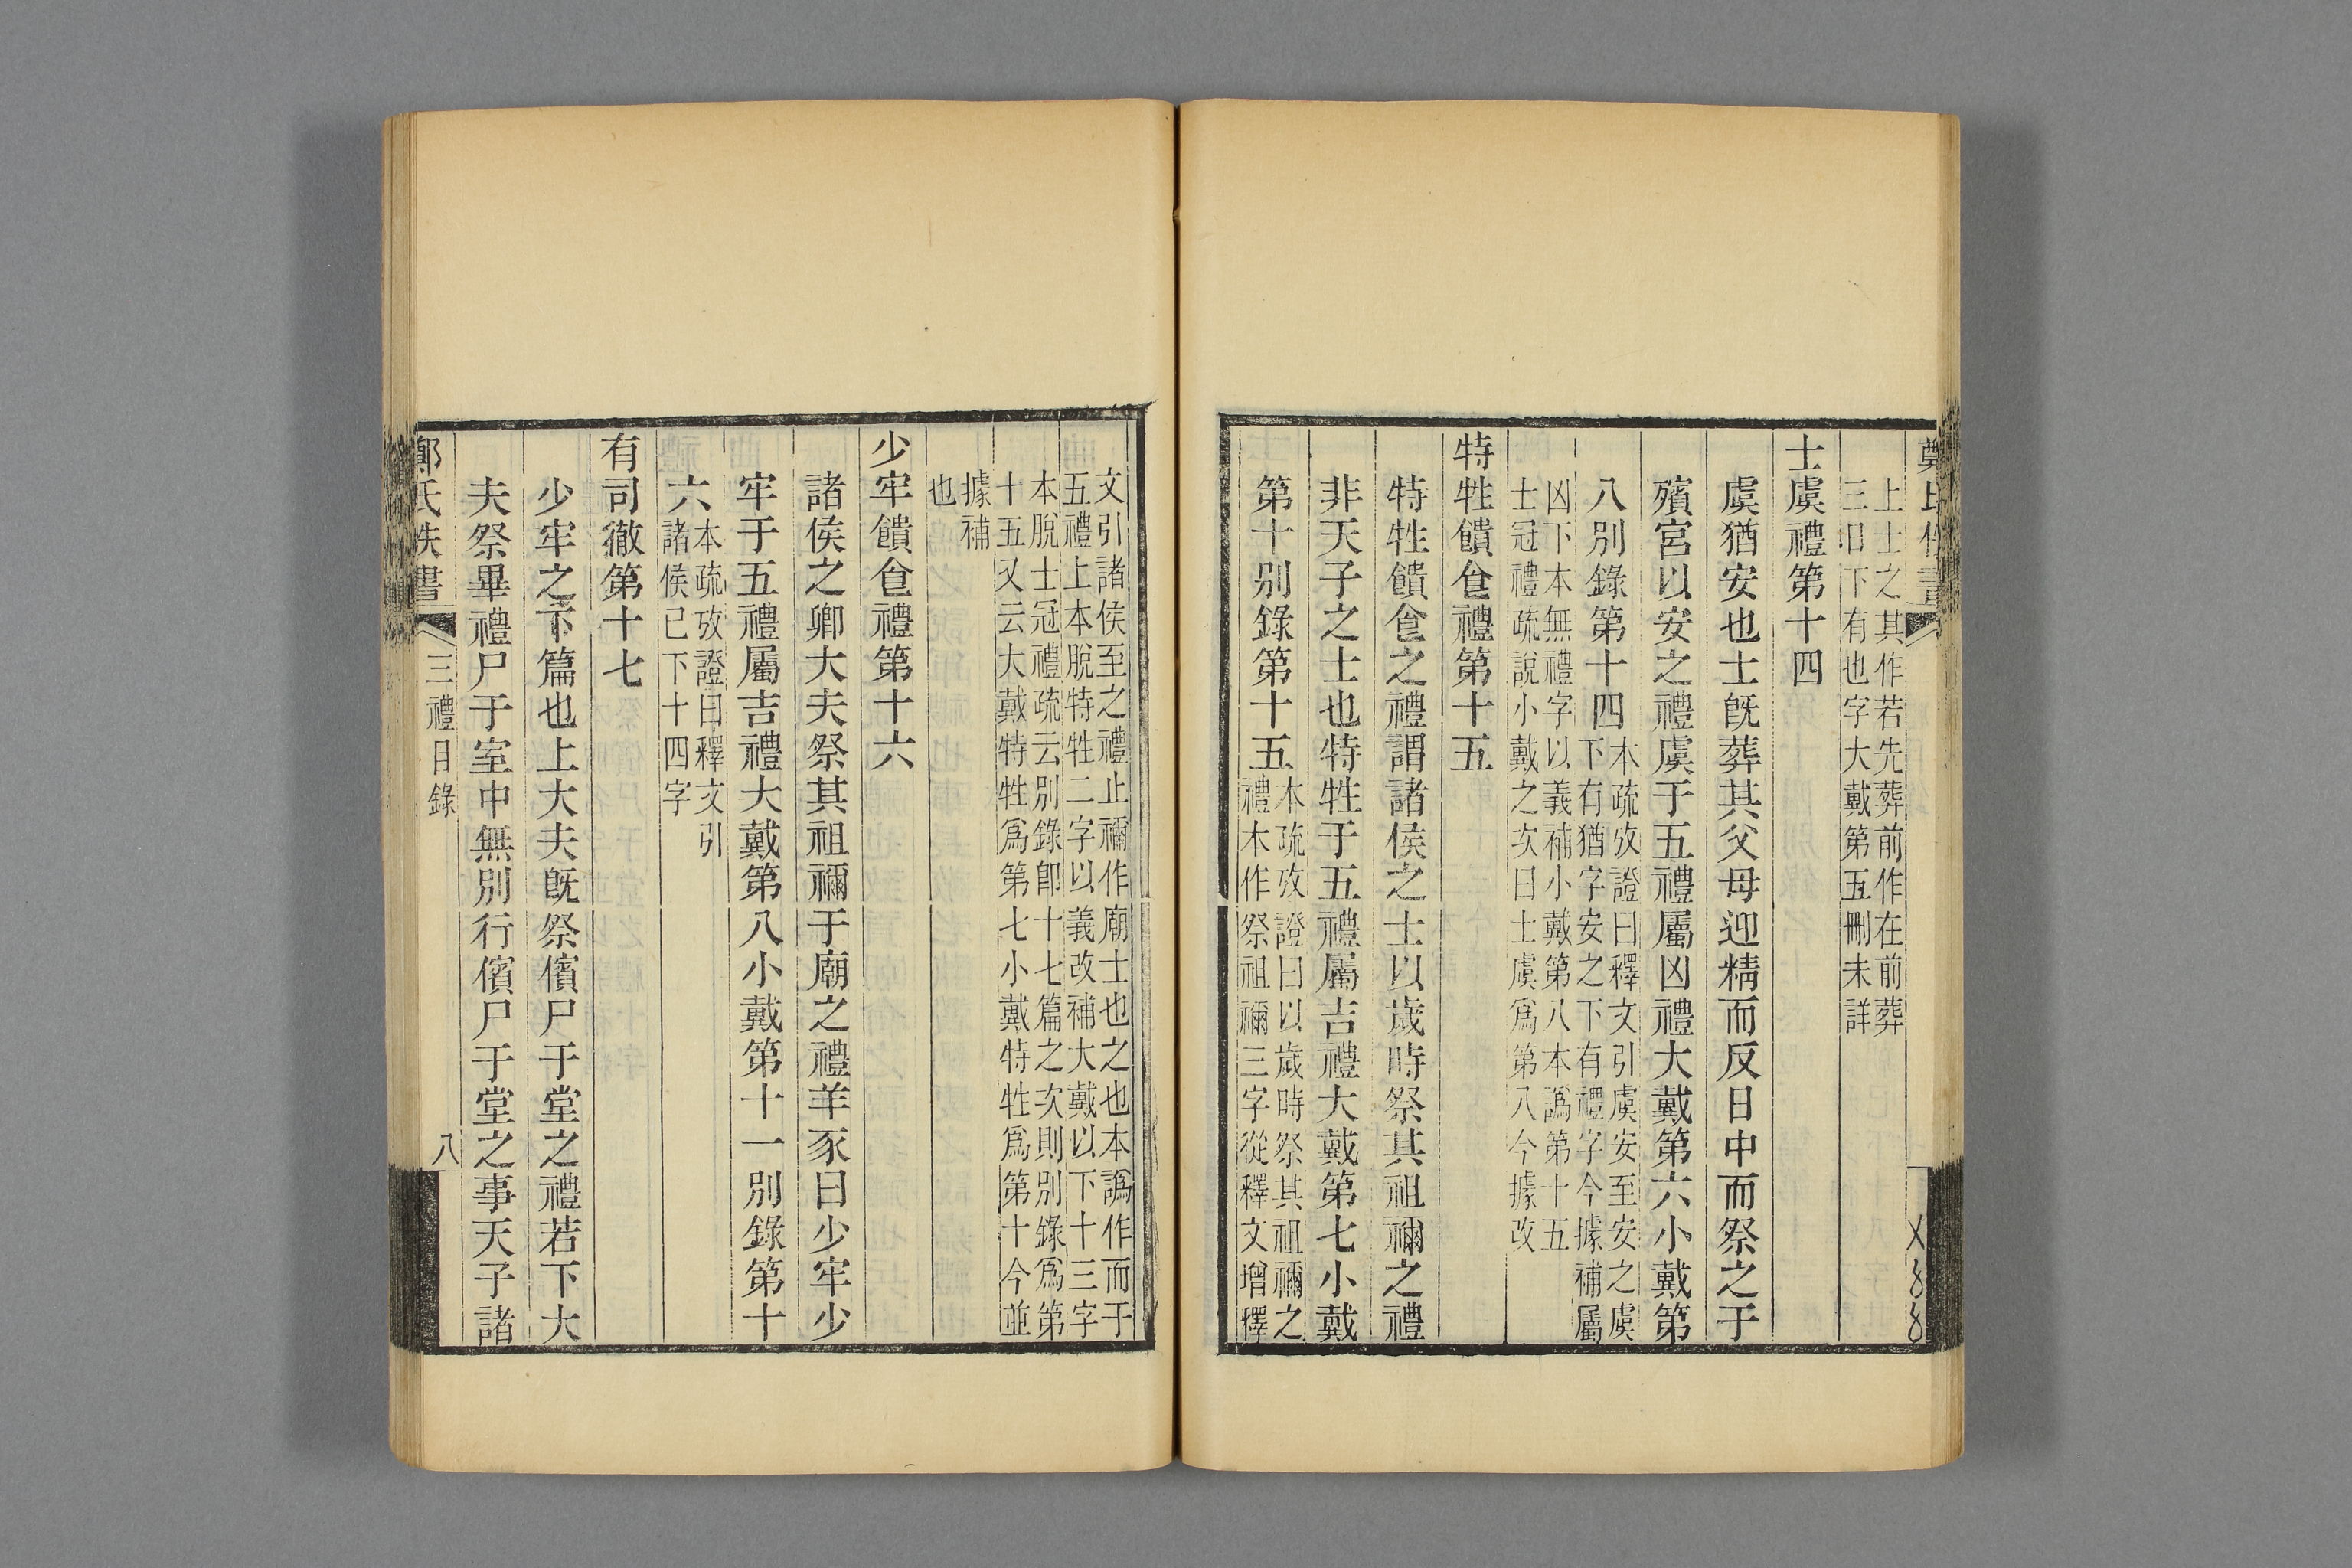 上士之其作若先葬前作在前葬
三旧下有也字大戴第五刪未詳
士虞禮第十四
虞猶安也士旣葬其父母迎精而反日中而祭之于
殯宮以安之禮虞于五禮屬凶禮大戴第六小戴第
八別錄第十四
本疏攷證曰釋文引虞安至安之虞
下有猶字安之下有禮字今據補屬
凶下本無禮字以義補小戴第八本譌第十五
士冠禮疏說小戴之次曰士虞爲第八今據改
特牲饋食禮第十五
特牲饋食之禮謂諸侯之士以歲時祭其祖禰之禮
非天子之士也特牲于五禮屬吉禮大戴第七小戴
第十別錄第十五
本疏攷證曰以歲時祭其祖禰之
禮本作祭祖禰三字從釋文增釋
文引諸侯至之禮止禰作廟士也之也本譌作而于
五禮上本脫特牲二字以義改補大戴以下十三字
本脫士冠禮疏云別錄卽十七篇之次則別錄爲第
十五又云大戴特牲爲第七小戴特牲爲第十今並
據補
也
少牢饋食禮第十六
諸侯之卿大夫祭其祖禰于廟之禮羊豕曰少牢少
牢于五禮屬吉禮大戴第八小戴第十一別錄第十
六
本疏攷證曰釋文引
諸侯已下十四字
有司徹第十七
少牢之下篇也上大夫旣祭儐尸于堂之禮若下大
夫祭畢禮尸于室中無別行儐尸于堂之事天子諸
鄭氏佚書
三禮目錄
八